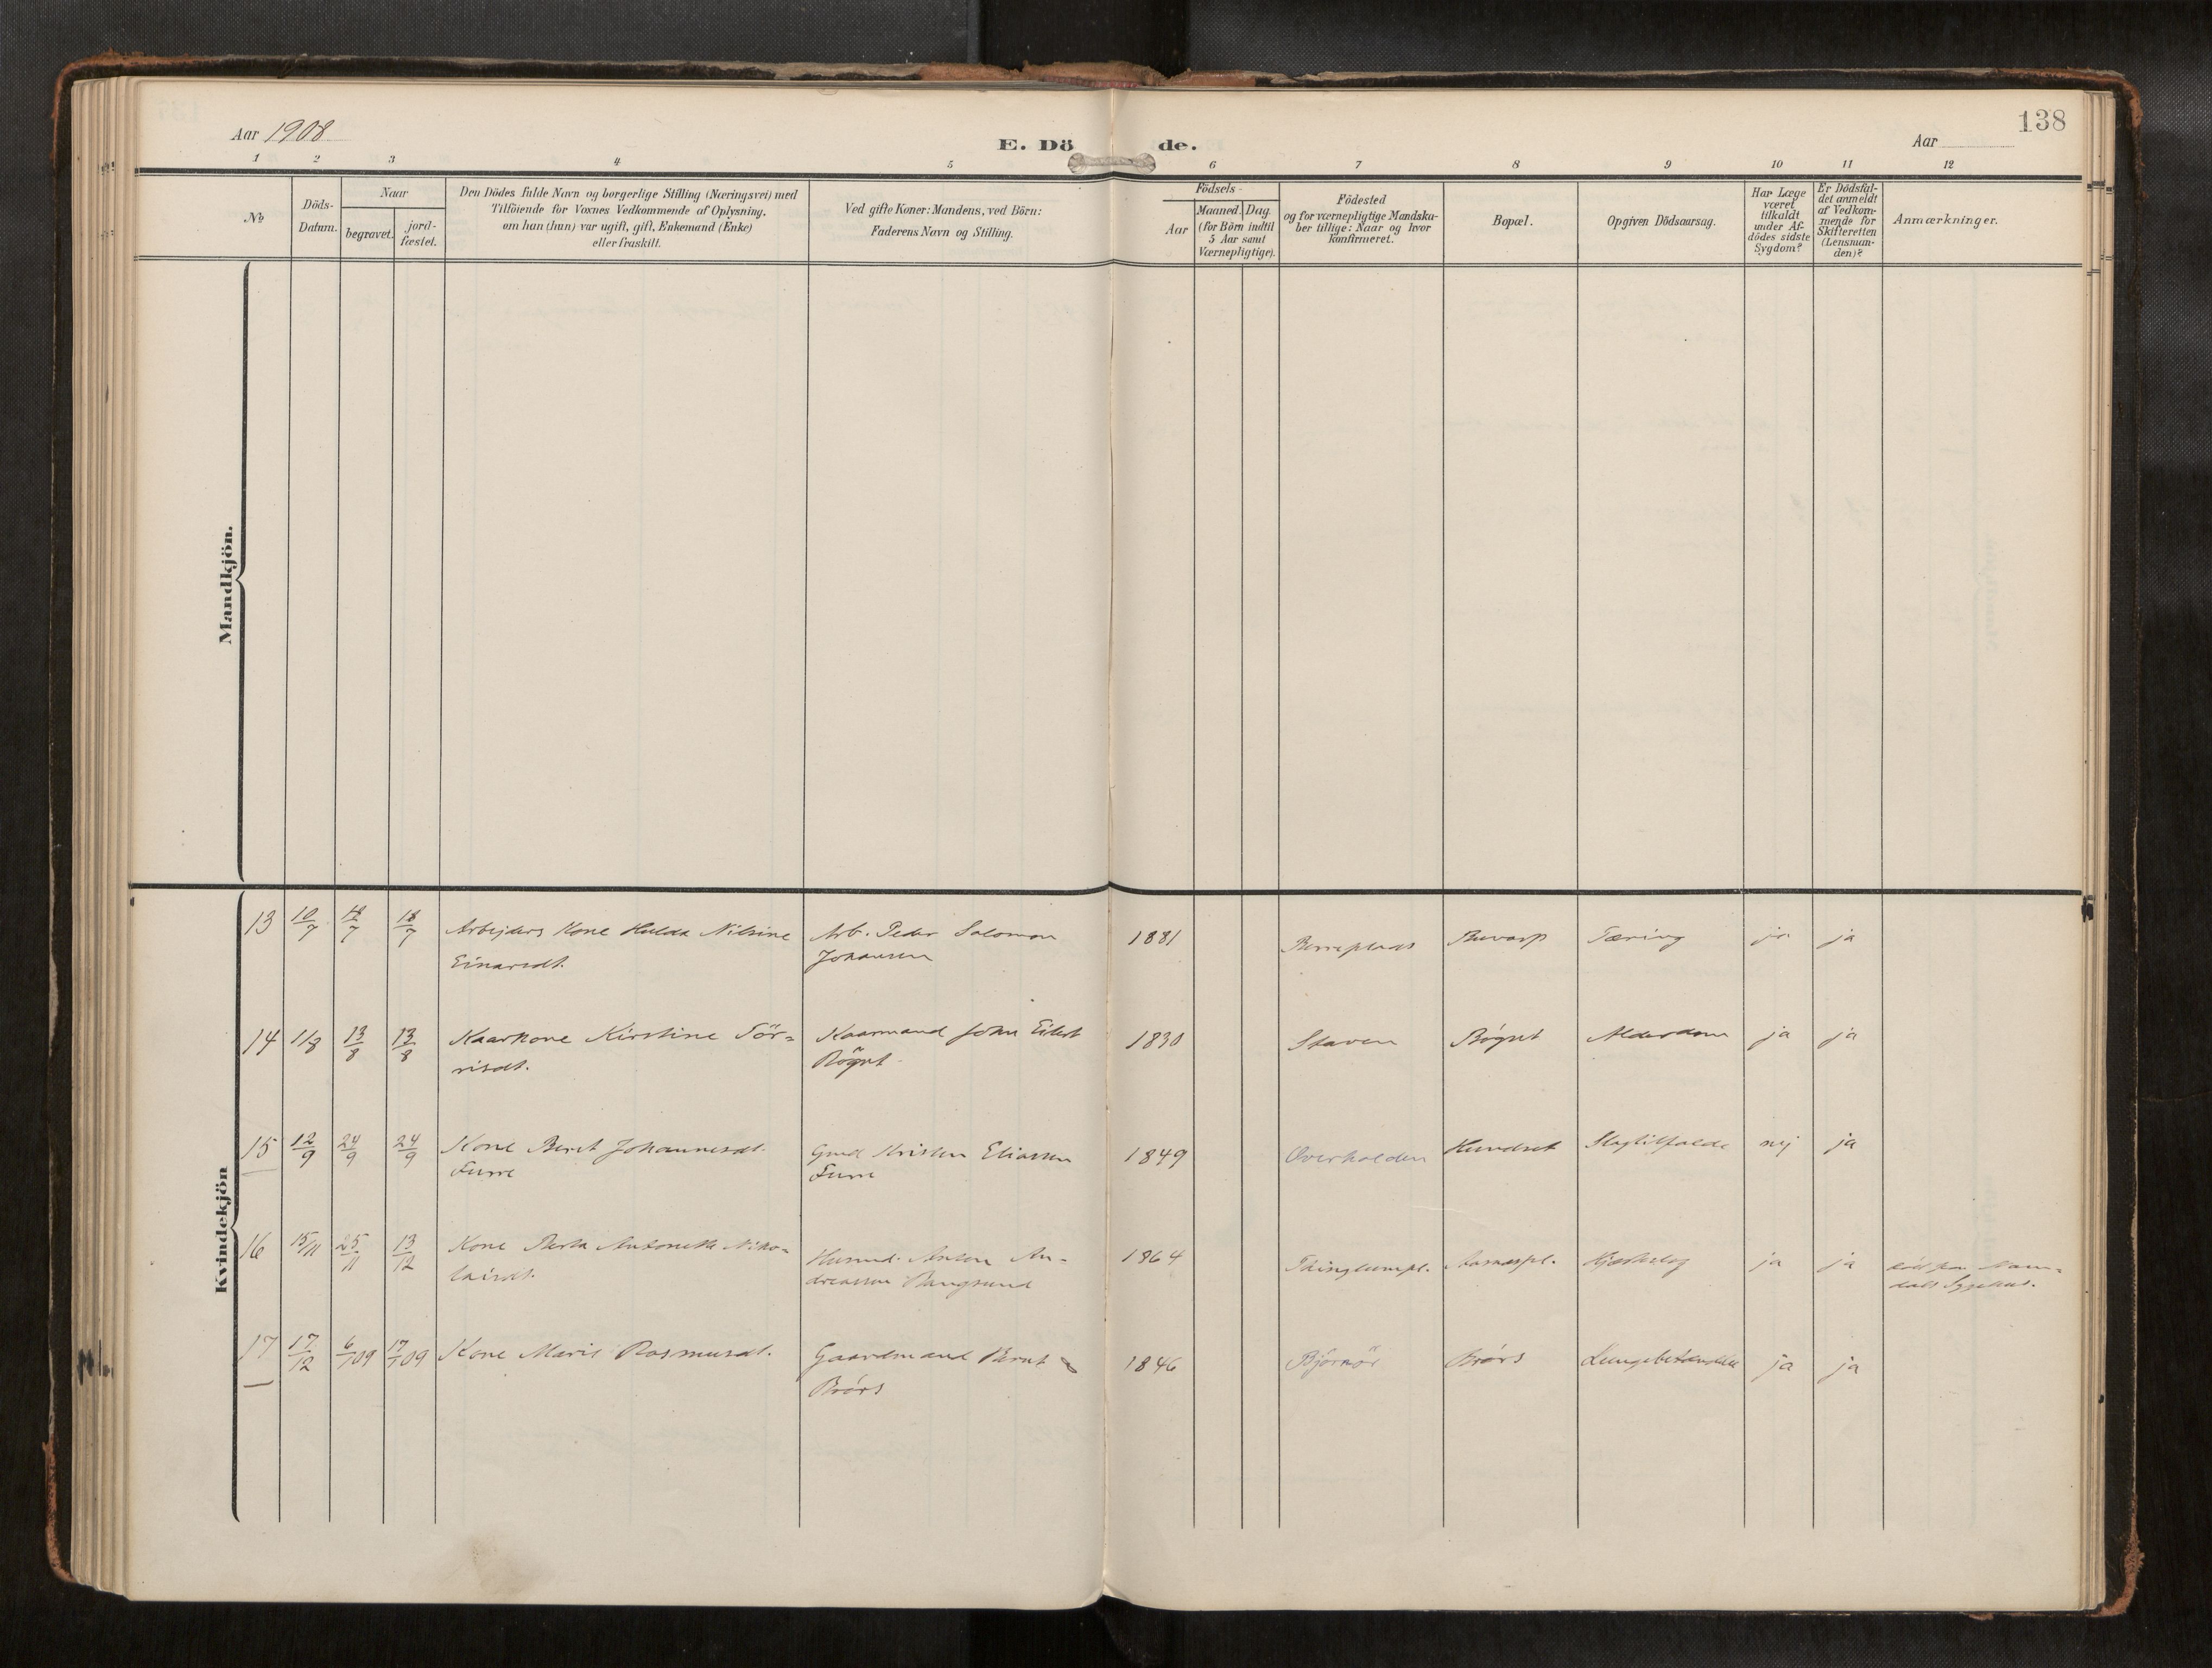 138
Aar 1908
E. Dö de.
Aar
1 2 3 4 5 6 7 8 9 10 11 12
No
Döds-
Datum.
Naar
begravet.
jord-
fæstet.
Den Dödes fulde Navn og borgerlige Stilling (Næringsvei) med
Tilföiende for Voxnes Vedkommende af Oplysning,
om han (hun) var ugift, gift, Enkemand (Enke)
eller fraskilt.
Ved gifte Koner: Mandens, ved Börn:
Faderens Navn og Stilling.
Födsels-
Aar
Maaned. Dag.
(for Börn indtil
5 Aar samt
Værnepligtige).
Födested
og for værnepligtige Mandska-
ber tillige: Naar og hvor
konfirmeret.
Bopæl.
Opgiven Dödsaarsag.
Har Læge
været
tilkaldt
under Af-
dödes sidste
Sygdom?
Er Dödsfal-
det anmeldt
af Vedkom-
mende for
Skifteretten
(Lensman-
den)?
Anmærkninger.
Mandkjön.
Kvindekjön
13 10/7 18/7 18/7 Arbejders Kone Hulda Nilsine Arb. Peder Salomon 1881 Berreplads Buvarp Tæring ja ja
Einarsdt. Johansen
14 11/8 13/8 13/8 Kaarkone Kirstine Tör- Kaarmand John Eilert 1830 Staven Bögset Alderdom ja ja
risdt. Bögset
15 12/9 24/9 24/9 Kone Berit Johannesdt. Gmd Kristen Eliassen 1849 Overhalden Hundset Slagtilfælde nej ja
Furre Furre
16 15/11 25/11 13/12 Kone Berta Antonette Niko- Husmd. Anton An- 1864 Thinglumpl. Aasnespl. Hjerteslag ja ja död paa Nam-
laisdt. dreassen Bangsund dals Sygehus.
17 17/12 6/1 09 17/1 09 Kone Marie Rasmusdt. Gaardmand Bernt 1846 Björnör Brörs Lungebetændelse ja ja
Brörs